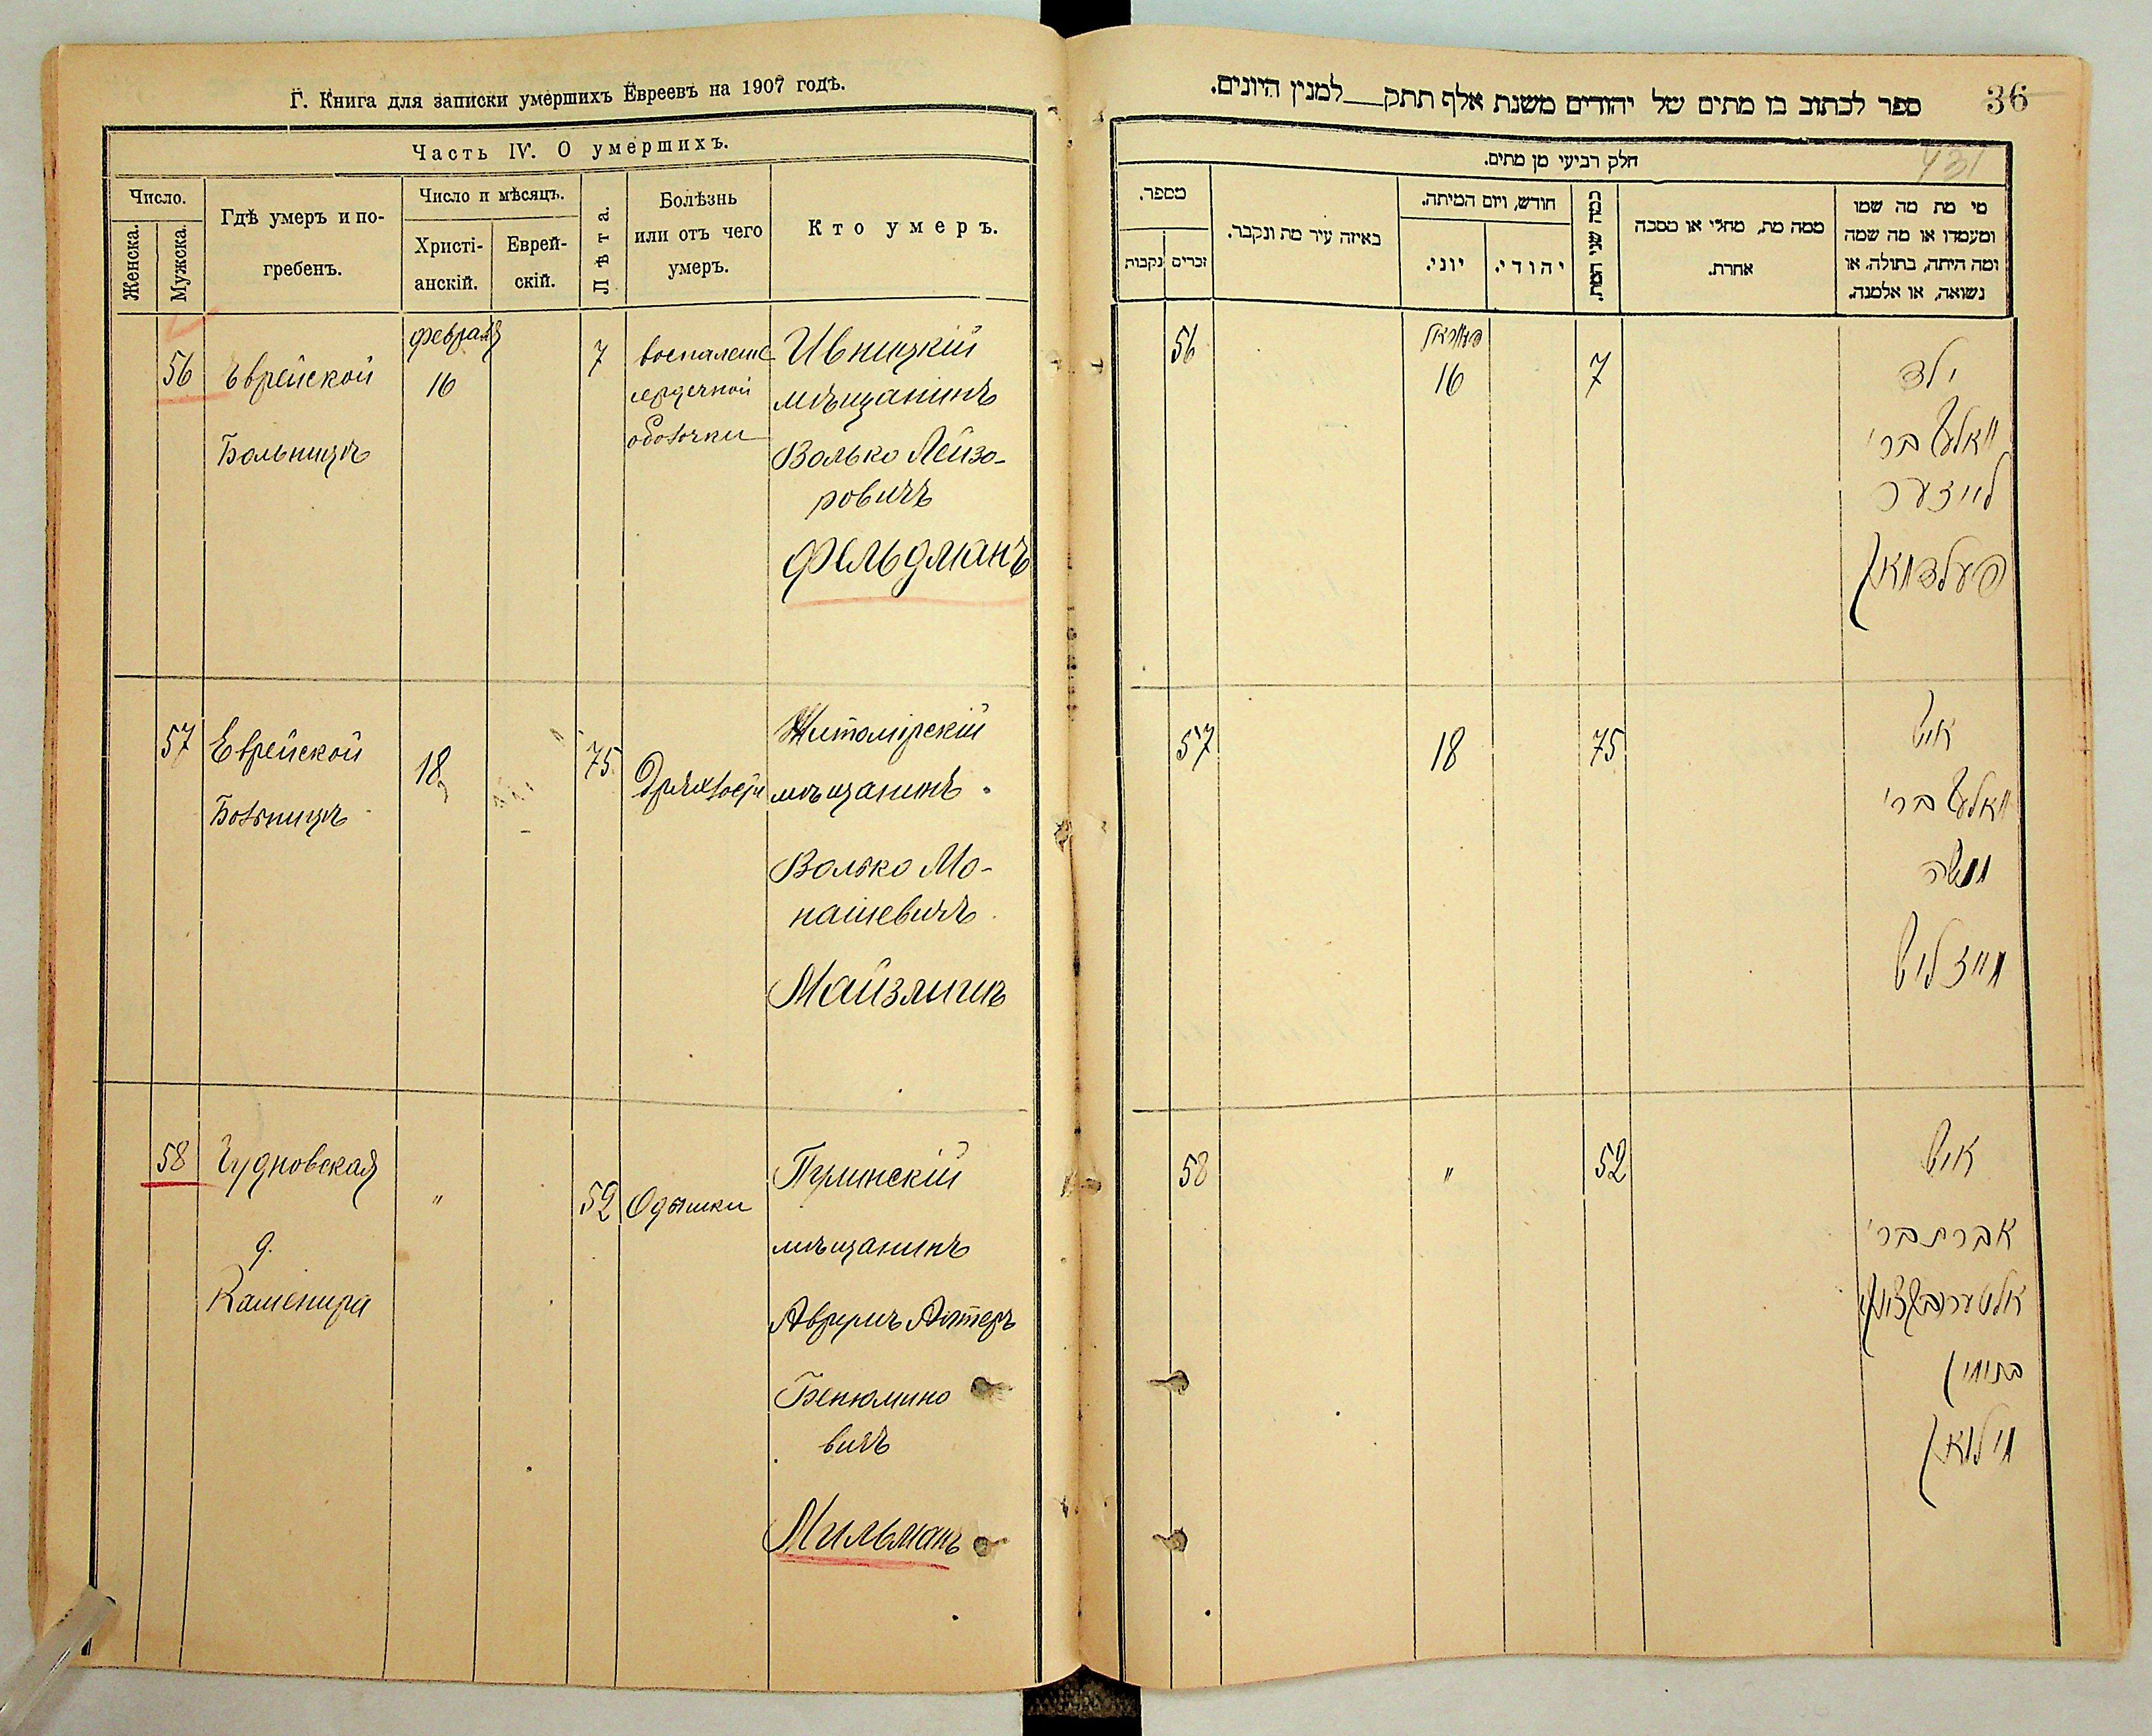 Г. Книга для записки умершихъ Евреевъ на 1907 годъ.
Часть IV. О умершихъ.
Число.
Женска.
Мужска.
Гдѣ умеръ и по-
гребенъ.
Число и мѣсяцъ.
Христі-
анскій.
Еврей-
скій.
Лѣта.
Болѣзнь
или отъ чего
умеръ.
Кто умеръ.
56
Еврейской
Больницѣ
февраля
16
7
воспаленіе
сердечной
оболочки
Ивницкій
мѣщанинъ
Волько Лейзо-
ровичъ
Фельдманъ
57
Еврейской
Больницѣ
18
75
Дряхлости
Житомірскій
мѣщанинъ
Волько Мо-
нашевичъ
Майзлишъ
58
Чудновская
д.
"
52
Одышки
Пулинскій
мѣщанинъ
Аврумъ Алтеръ
Бенюмино
вичъ
Мильманъ
ספר לכתוב בו מתים של יהודים משנת אלף תתק למנין היונים.
36
431
חלק רביעי מן מתים.
מי מת מה שמו
ומעמדו או מה שמה
ומה היתה, בתולה, או
נשואה, או אלמנה.
ממה מת, מחלי או מסבה
אחרת.
כמה שני המת.
חודש, ויום המיתה.
יהודי.
יוני.
באיזה עיר מת ונקבר.
מספר.
זכרים
נקבות
56
16
7
ילד
וואלף בר'
לייזער
פעלדמאן
57
18
75
איש
וואלף בר'
מנשה
מייזליש
58
"
52
איש
אברהם בר'
בנימין
מילמאן